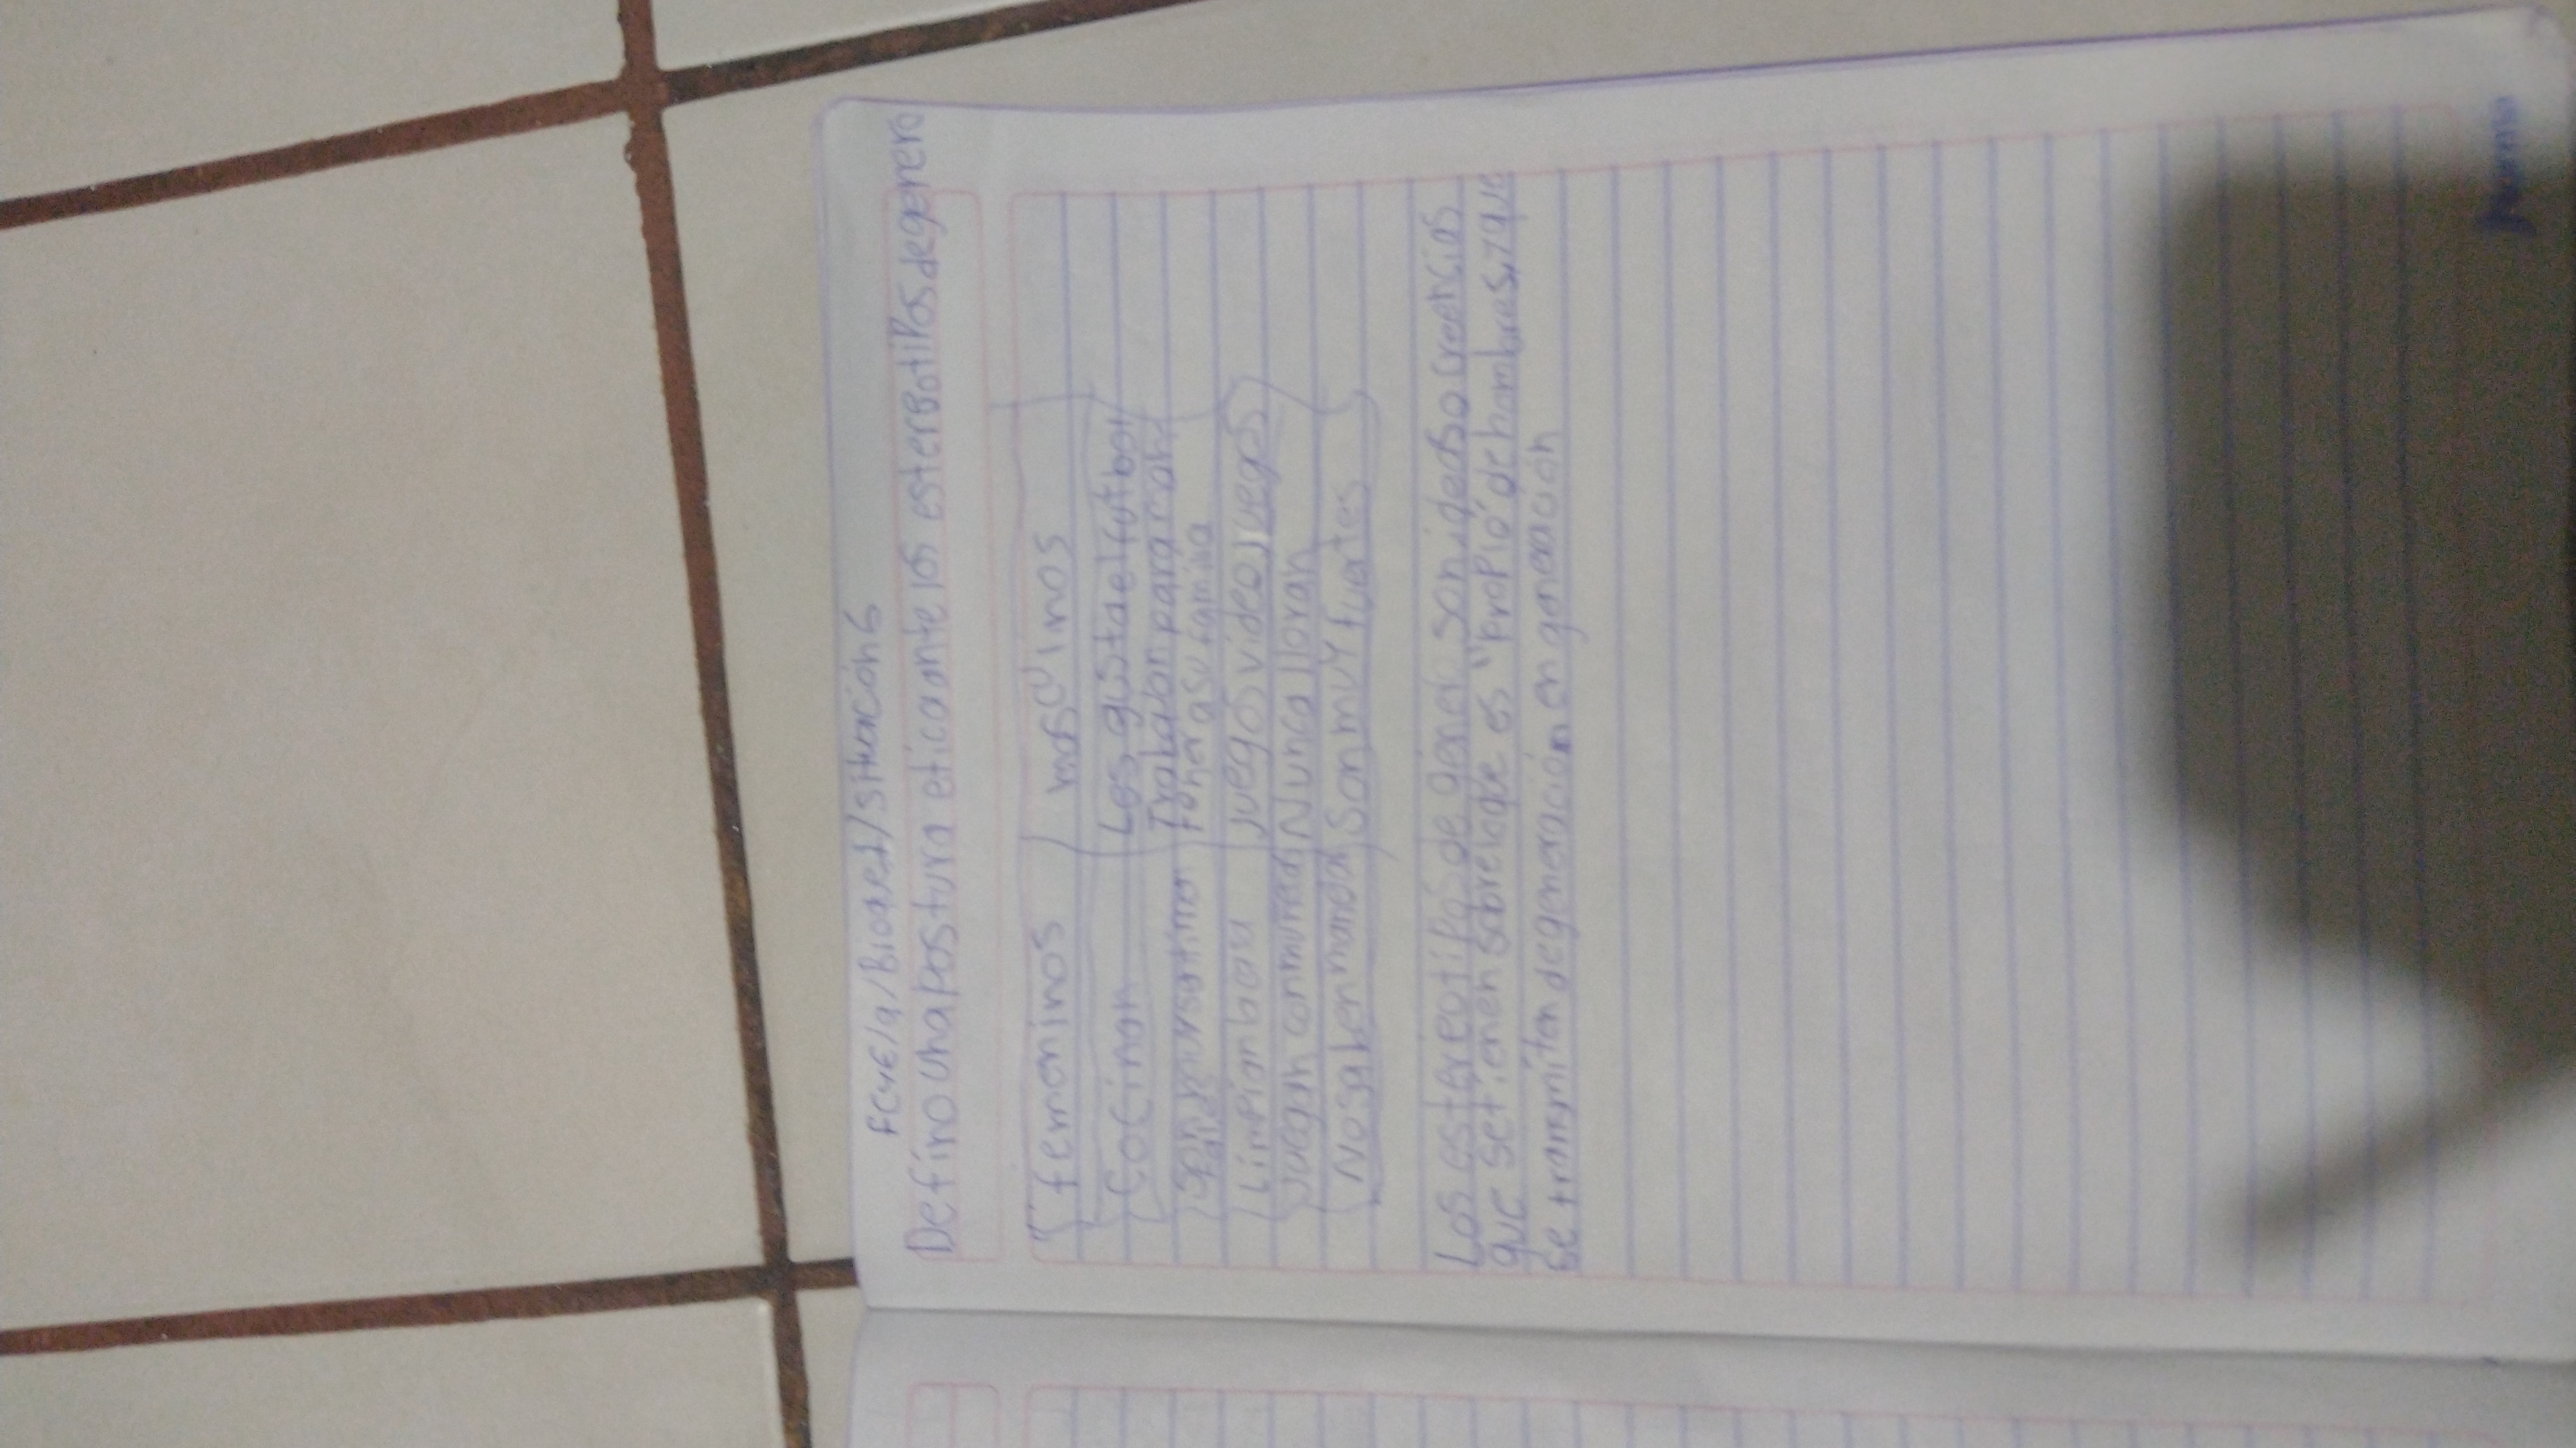 FCyE/a/Bloque1/situación6
Defino una postura etica ante los estereotipos de genero
femeninos masculinos
Cocinan Les gusta el futbol
Son muy sentimen Trabajan para man
tales tener a su familia
Limpian la casa juegos videojuegos
Juegan con muñecas Nunca lloran
No saben manejar Son muy fuertes
Los estereotipos de géner son ideas o creencias
que se tienen sobre lo que es "propio" de hombres, y que
se transmiten de generación en generación
Norma